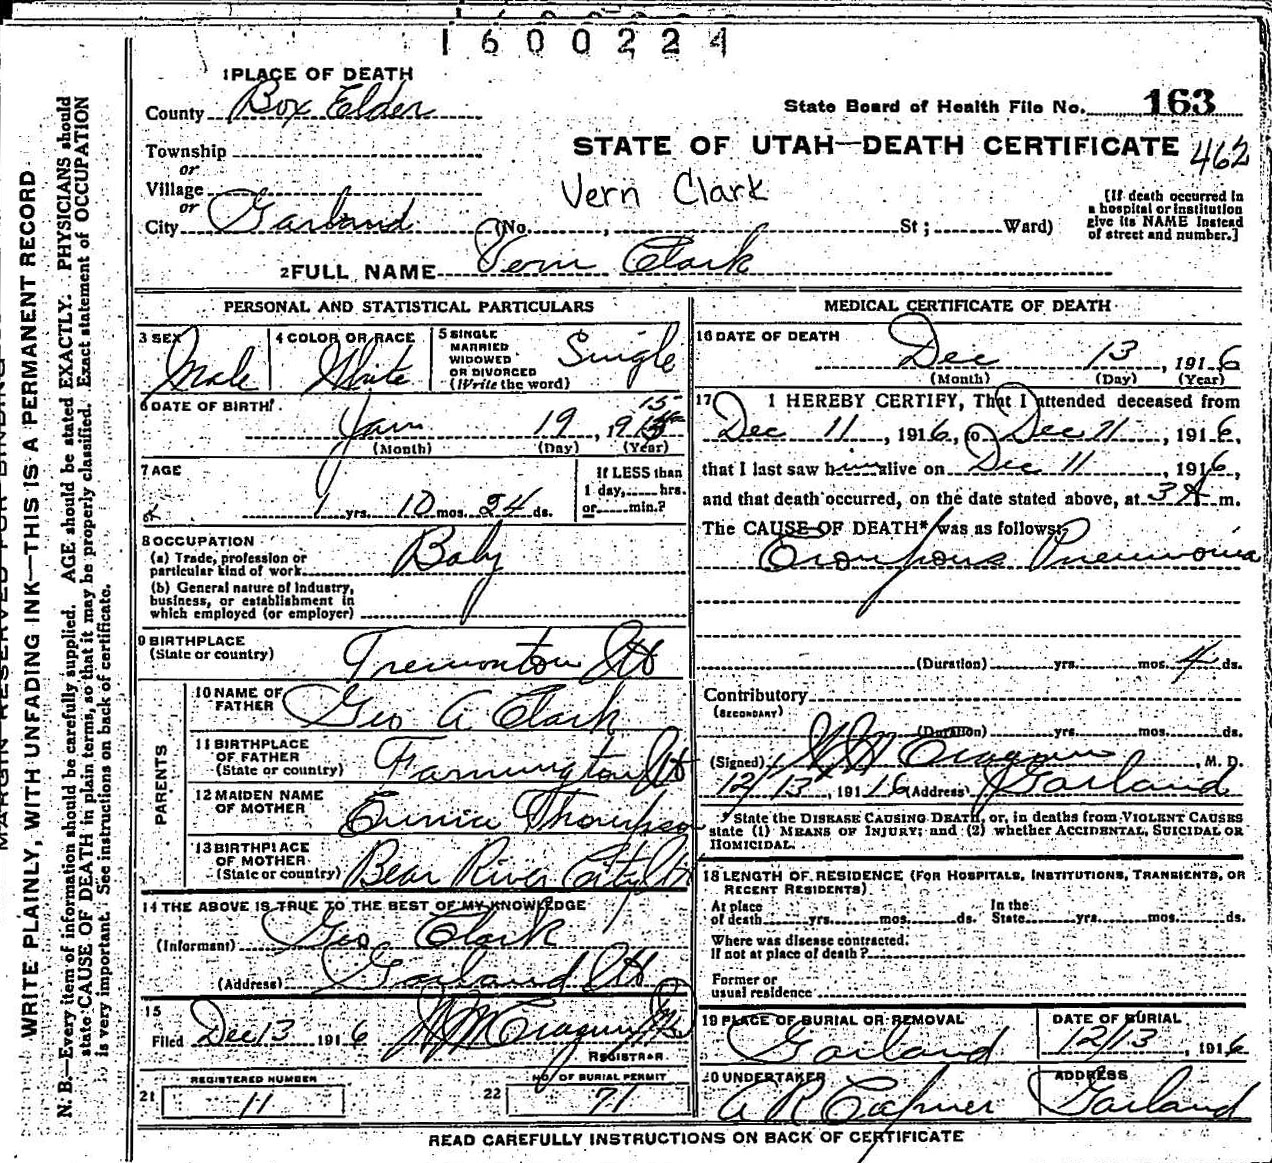 1600224
1 PLACE OF DEATH
County Box Elder
State Board of Health File No. 163
Township
or
STATE OF UTAH—DEATH CERTIFICATE 462
Village
or
Vern Clark
City Garland (No. , St; Ward)
[If death occurred in
a hospital or institution
give its NAME instead
of street and number.]
2 FULL NAME Vern Clark
PERSONAL AND STATISTICAL PARTICULARS
3 SEX Male
4 COLOR OR RACE White
5 SINGLE
MARRIED
WIDOWED
OR DIVORCED
(Write the word) Single
6 DATE OF BIRTH
Jan 19, 1915
(Month) (Day) (Year)
7 AGE
1 yrs. 10 mos. 24 ds.
If LESS than
1 day, hrs.
or min.?
8 OCCUPATION
(a) Trade, profession or
particular kind of work Baby
(b) General nature of industry,
business, or establishment in
which employed (or employer)
9 BIRTHPLACE
(State or country) Tremonton Ut
PARENTS
10 NAME OF
FATHER Geo A Clark
11 BIRTHPLACE
OF FATHER
(State or country) Farmington Ut
12 MAIDEN NAME
OF MOTHER Thompson
13 BIRTHPLACE
OF MOTHER
(State or country) Bear River City Ut
14 THE ABOVE IS TRUE TO THE BEST OF MY KNOWLEDGE
(Informant) Geo Clark
(Address) Garland Ut
15
Filed Dec 13 1916 W M Cragun
REGISTRAR
REGISTERED NUMBER
21 11
NO. OF BURIAL PERMIT
22 71
MEDICAL CERTIFICATE OF DEATH
16 DATE OF DEATH
Dec 13, 1916
(Month) (Day) (Year)
17 I HEREBY CERTIFY, That I attended deceased from
Dec 11, 1916, to Dec 11, 1916,
that I last saw him alive on Dec 11, 1916,
and that death occurred, on the date stated above, at 3 A m.
The CAUSE OF DEATH* was as follows:
Croupous Pneumonia
(Duration) yrs. mos. 4 ds.
Contributory
(SECONDARY)
(Duration) yrs. mos. ds.
(Signed) W M Cragun, M. D.
12/13, 191 16 (Address) Garland
* State the DISEASE CAUSING DEATH, or, in deaths from VIOLENT CAUSES
state (1) MEANS OF INJURY; and (2) whether ACCIDENTAL, SUICIDAL OR
HOMICIDAL.
18 LENGTH OF RESIDENCE (FOR HOSPITALS, INSTITUTIONS, TRANSIENTS, OR
RECENT RESIDENTS)
At place
of death yrs. mos. ds.
In the
State yrs. mos. ds.
Where was disease contracted,
If not at place of death?
Former or
usual residence
19 PLACE OF BURIAL OR REMOVAL
Garland
DATE OF BURIAL
12/13, 1916
20 UNDERTAKER
A R Capner
ADDRESS
Garland
READ CAREFULLY INSTRUCTIONS ON BACK OF CERTIFICATE
WRITE PLAINLY, WITH UNFADING INK—THIS IS A PERMANENT RECORD
N. B.—Every item of information should be carefully supplied. AGE should be stated EXACTLY. PHYSICIANS should
state CAUSE OF DEATH in plain terms, so that it may be properly classified. Exact statement of OCCUPATION
is very important. See instructions on back of certificate.